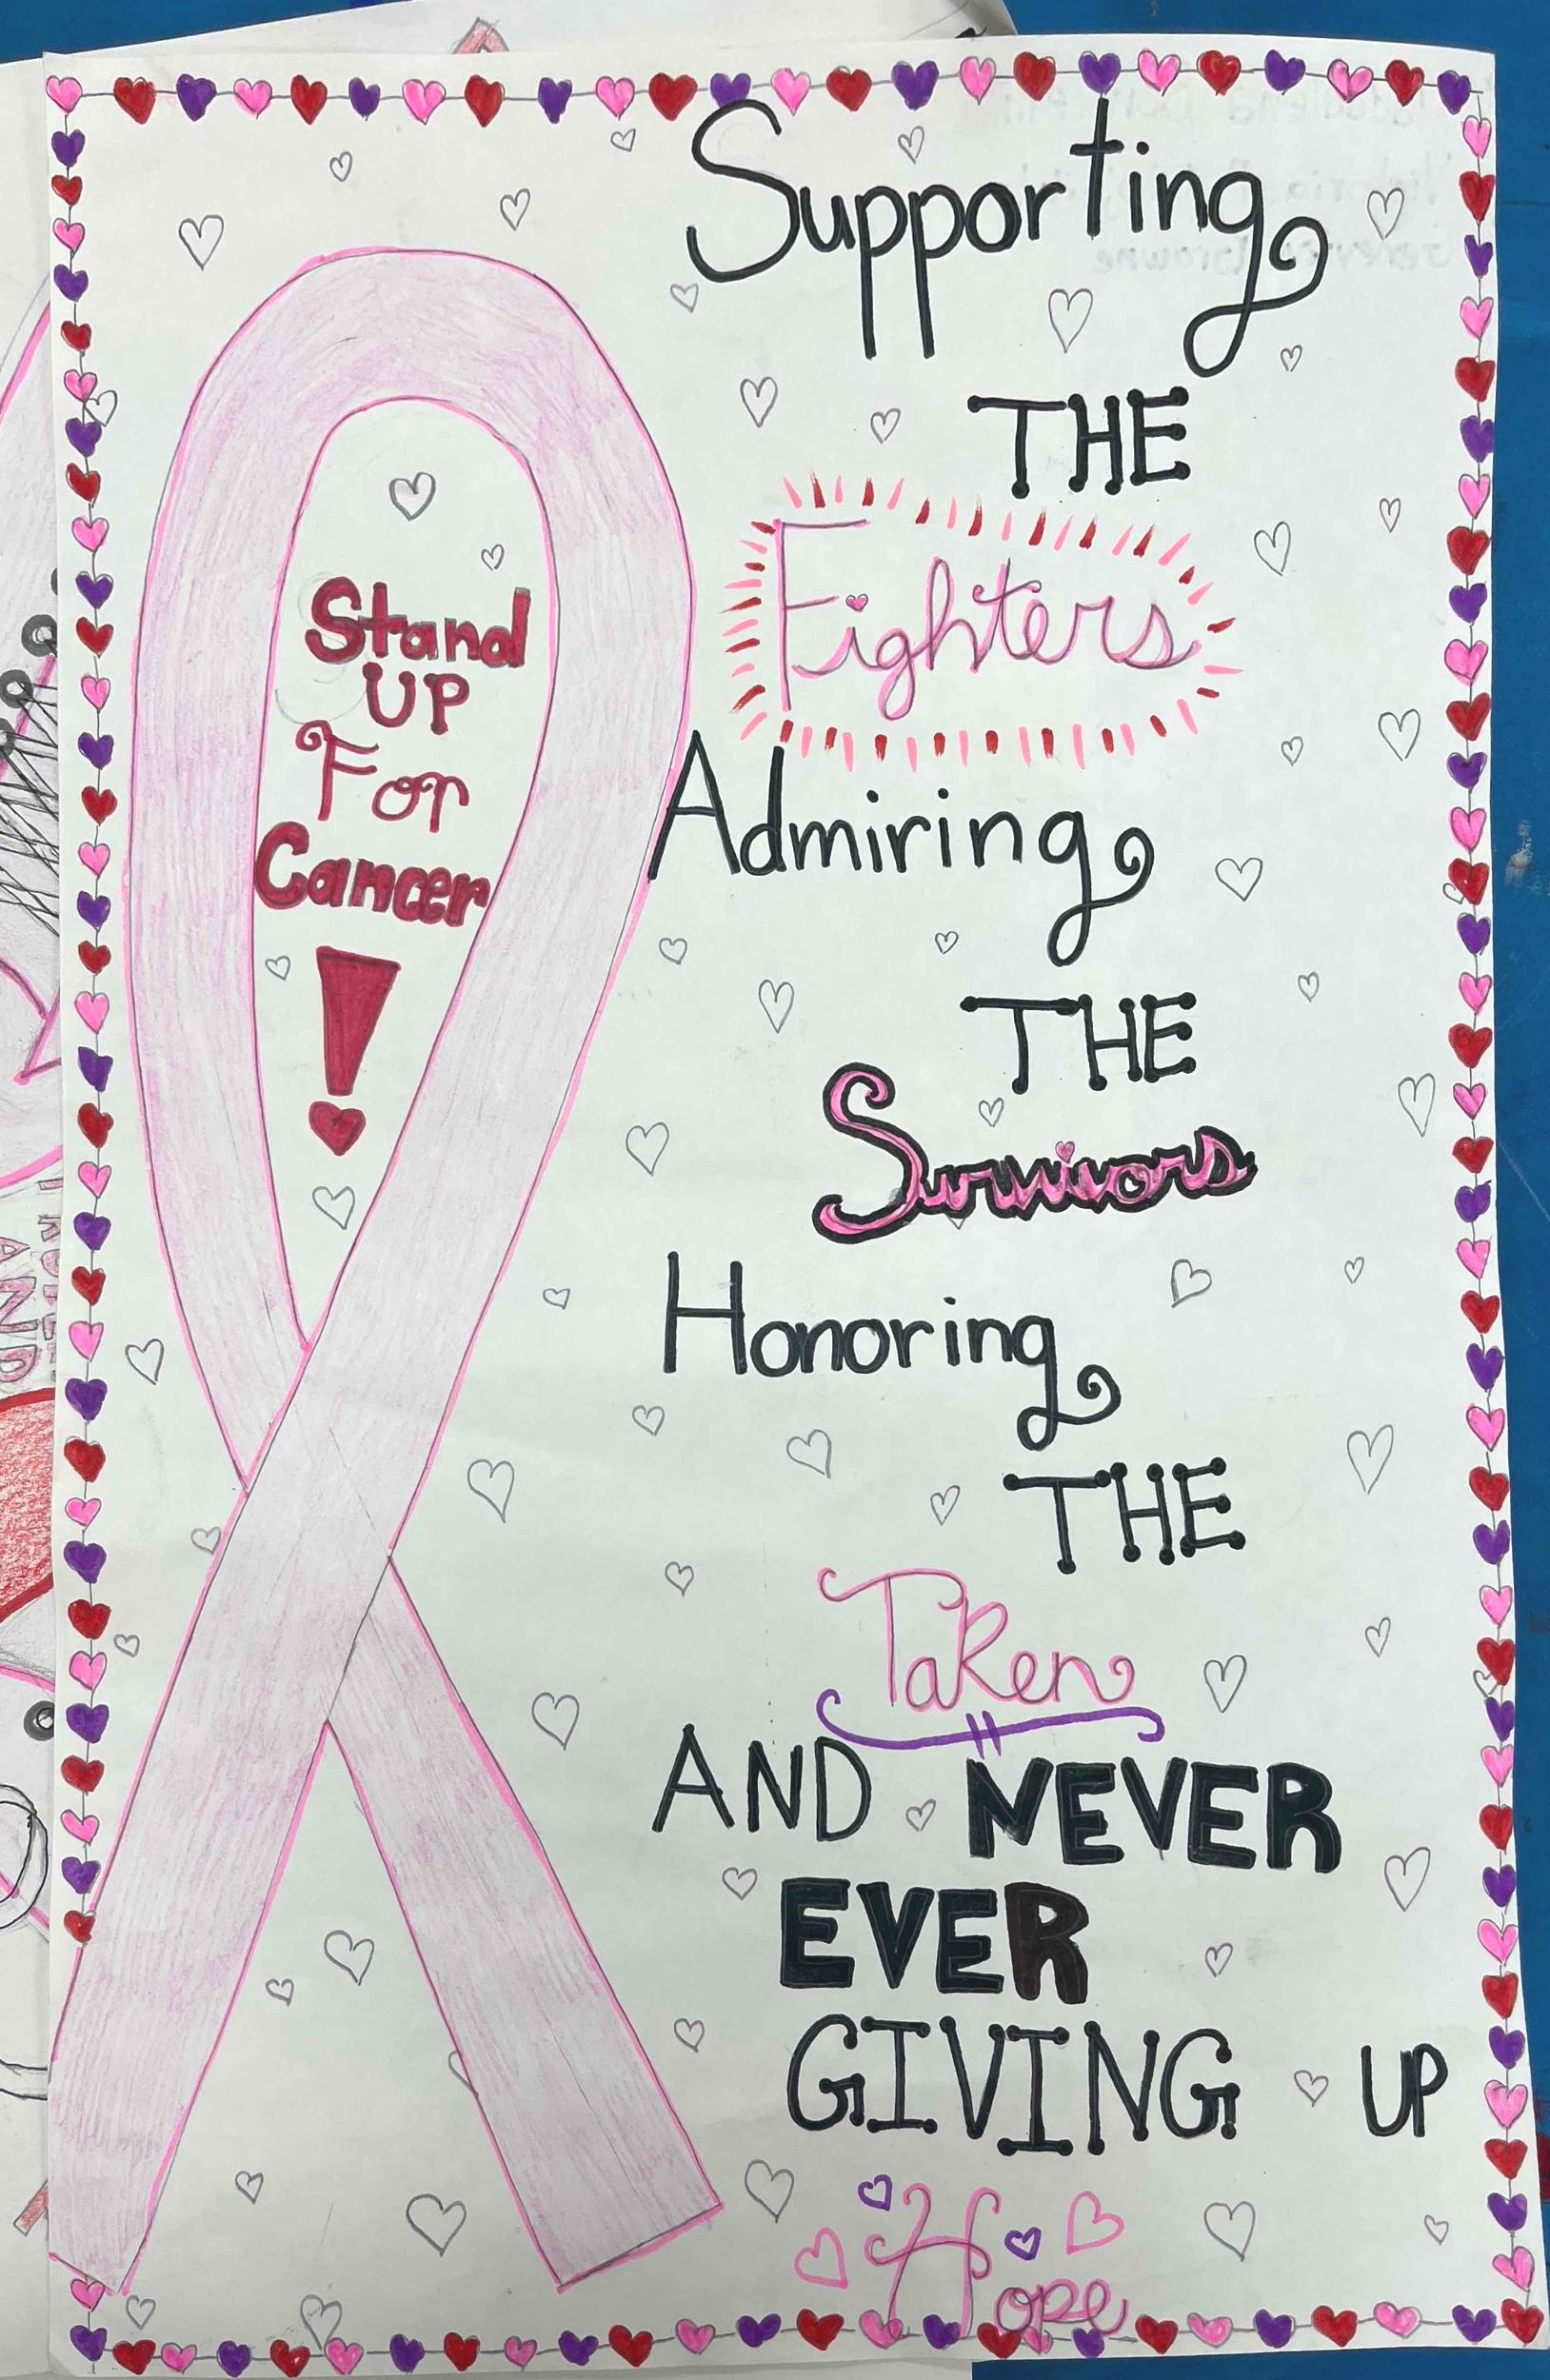 Supporting
THE
Fighters
Admiring
THE
Survivors
Honoring
THE
Taken
AND NEVER
EVER
GIVING UP
Hope
Stand
UP
For
Cancer
!
AND